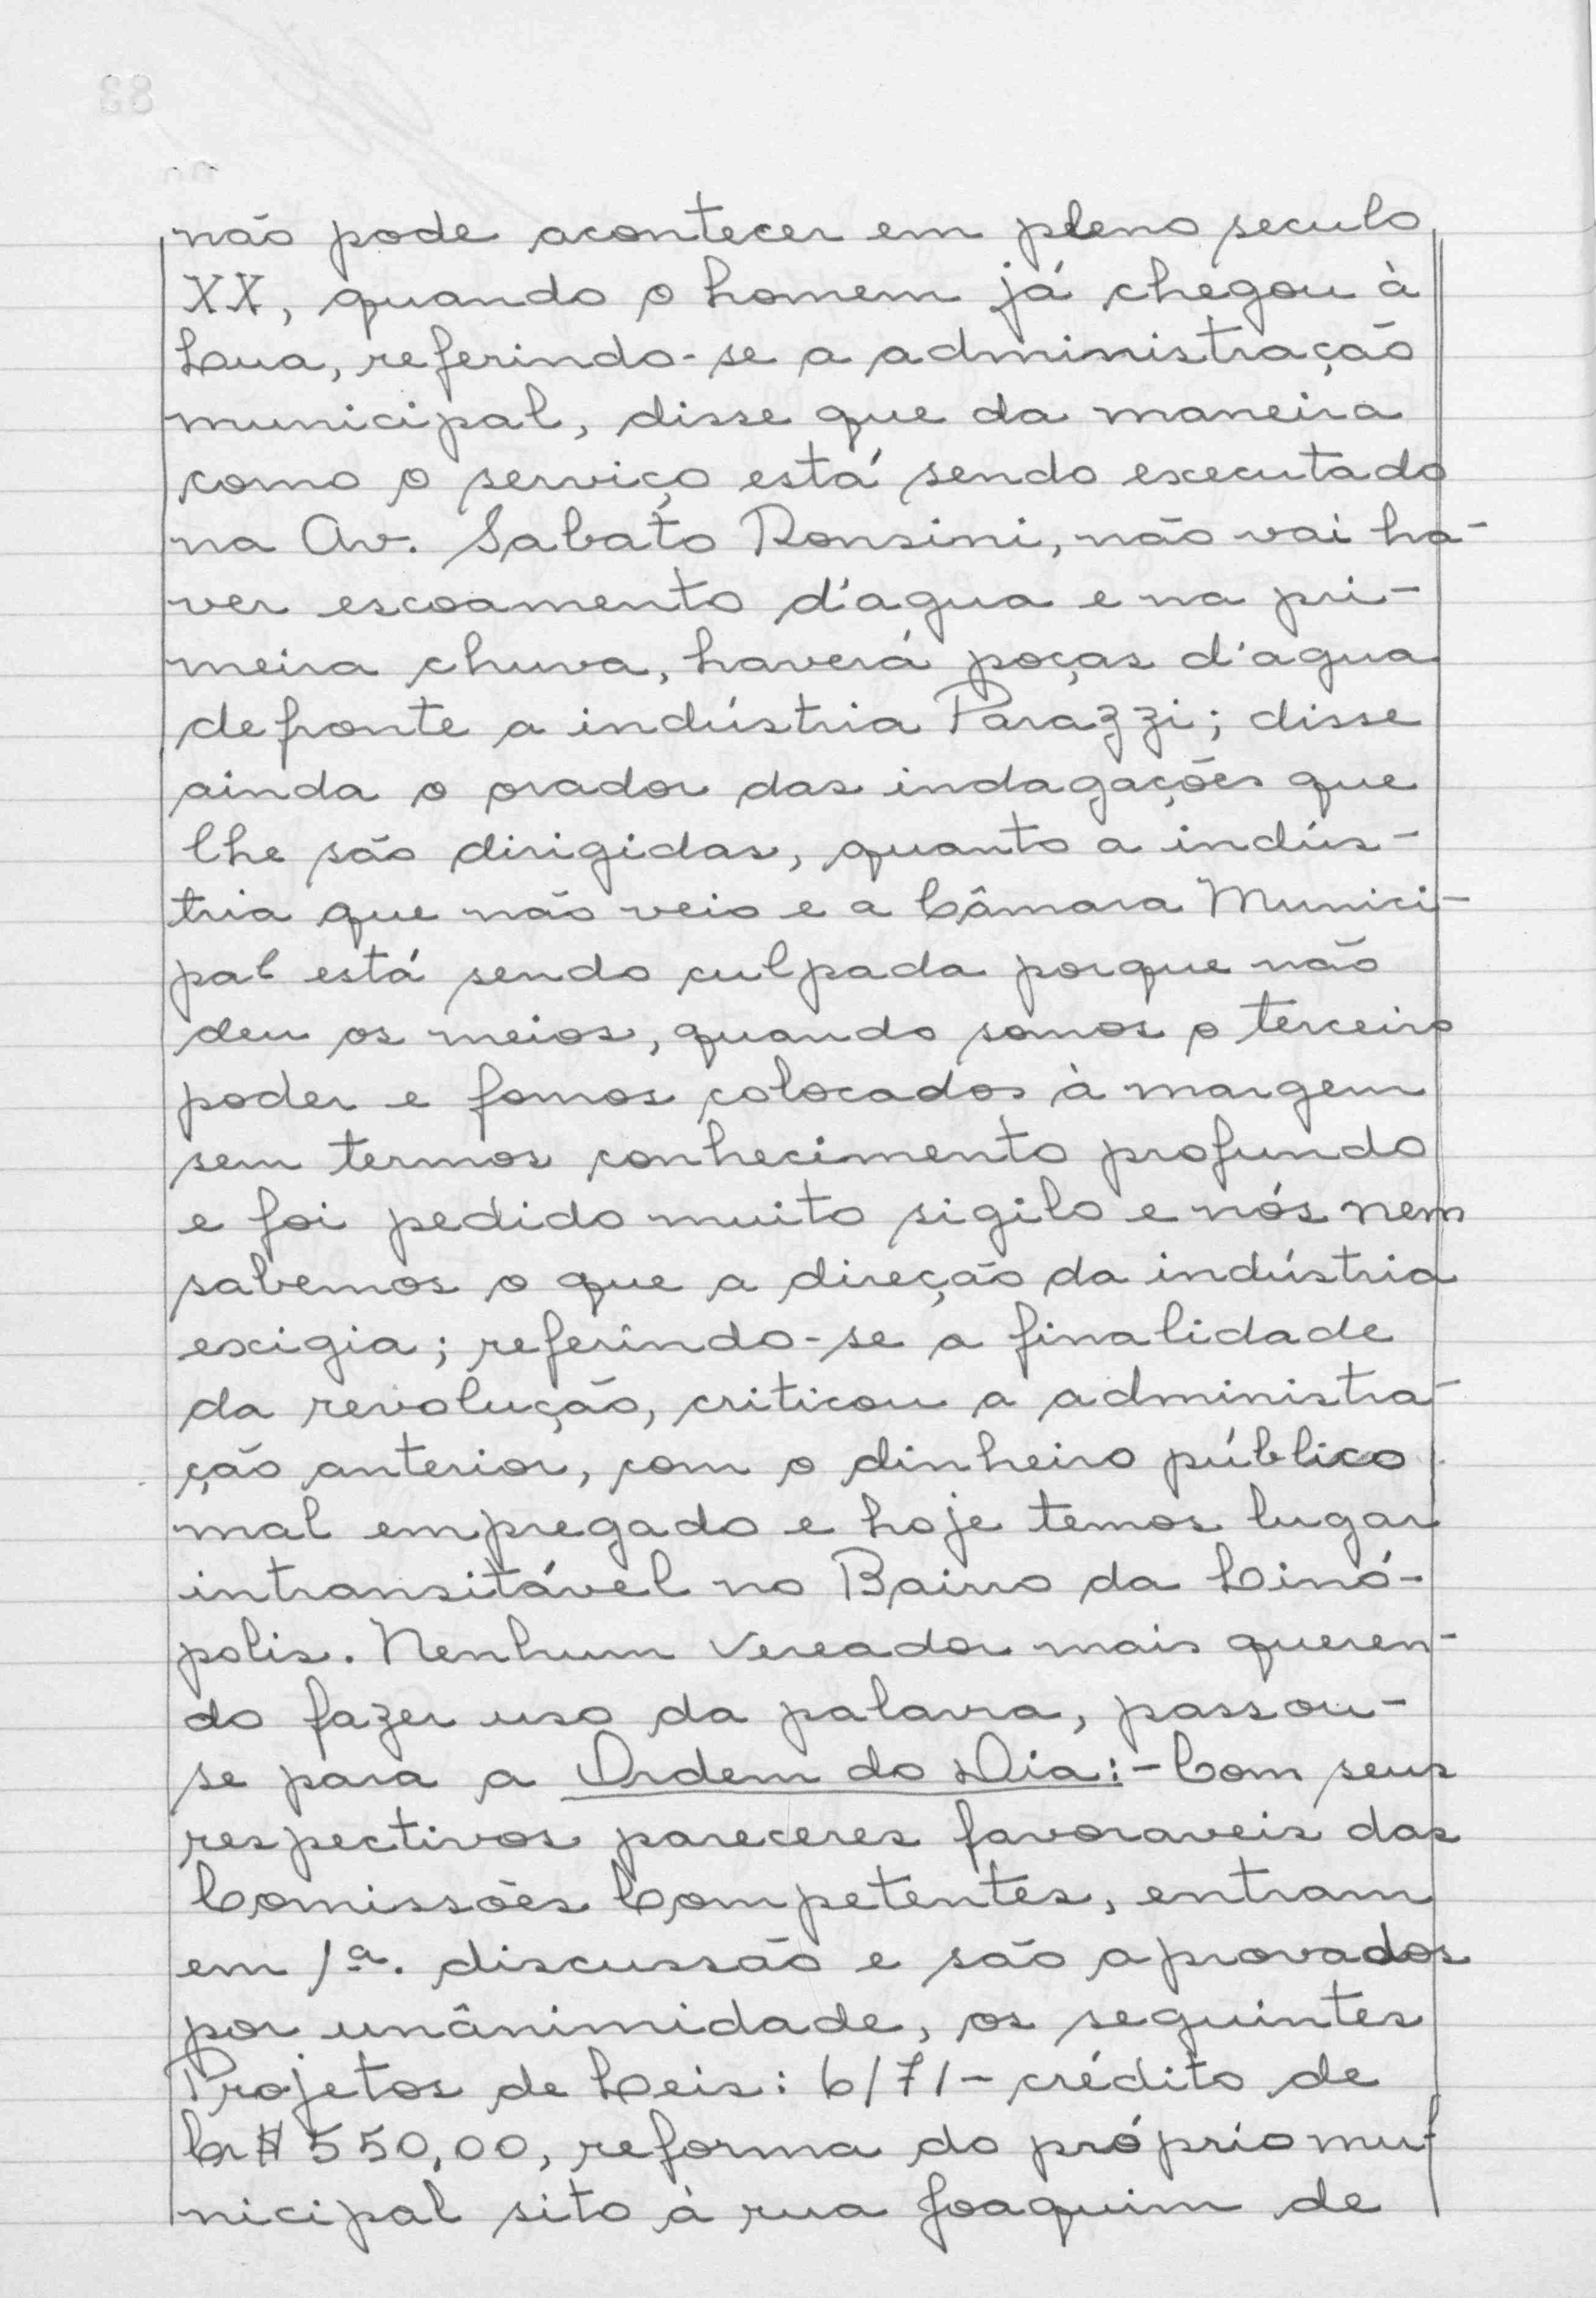 não pode acontecer em pleno seculo
XX, quando o homem já chegou à
Lua, referindo-se a administração
municipal, disse que da maneira
como o serviço está sendo executado
na Av. Sabato Ronsini, não vai ha-
ver escoamento d'agua e na pri-
meira chuva, haverá poças d'agua
defronte a indústria Parazzi; disse
ainda o orador das indagações que
lhe são dirigidas, quanto a indús-
tria que não veio e a Câmara Munici-
pal está sendo culpada porque não
deu os meios, quando somos o terceiro
poder e fomos colocados à margem
sem termos conhecimento profundo
e foi pedido muito sigilo e nós nem
sabemos o que a direção da indústria
exigia; referindo-se a finalidade
da revolução, criticou a administra-
ção anterior, com o dinheiro público
mal empregado e hoje temos lugar
intransitável no Bairro da Linó-
polis. Nenhum Vereador mais queren-
do fazer uso da palavra, passou-
se para a Ordem do Dia:- Com seus
respectivos pareceres favoraveis das
Comissões Competentes, entram
em 1ª. discussão e são aprovados
por unânimidade, os seguintes
Projetos de Leis: 6/71 - crédito de
Cr$ 550,00, reforma do próprio mu-
nicipal sito à rua Joaquim de